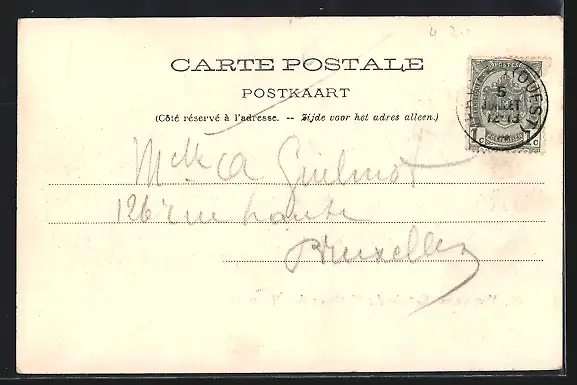 CARTE POSTALE
POSTKAART
(Côté réservé à l'adresse. -- Zijde voor het adres alleen.)
Melle A Guilmot
126 rue haute
Bruxelles
POSTES
1 c 1 c
5